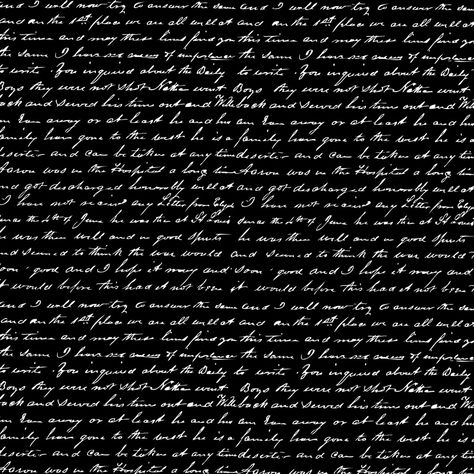 and I will now try to answer the same and I will now try to answer the same
and in the 1st place we are all well at and in the 1st place we are all well at
this time and may these lines find you this time and may these lines find you
the same I have no news of importance the same I have no news of importance
to write. You inquired about the Daily to write. You inquired about the Daily
Boys they were not shot went Boys they were not shot went
back and served his time out and Will back and served his time out and Will
am away or at least he and his am away or at least he and his
family have gone to the west he is a family have gone to the west he is a
deserter and can be taken at any time deserter and can be taken at any
Aaron was in the Hospital a long time Aaron was in the Hospital a long
and got discharged honorably well at and got discharged honorably well at
I have not any Letter from I have not any Letter from
since the 4th of June he was then at St Louis since the 4th of June he was then at St Louis
he was then well and in good Spirits he was then well and in good Spirits
and seemed to think the war would and seemed to think the war would
soon good and I hope it may and soon good and I hope it may and
it would before this had it not been it would before this had it not
and I will now try to answer the same and I will now try to answer the same
and in the 1st place we are all well at and in the 1st place we are all well at
this time and may these lines find you this time and may these lines find you
the same I have no news of importance the same I have no news of importance
to write. You inquired about the Daily to write. You inquired about the Daily
Boys they were not shot went Boys they were not shot went
back and served his time out and Will back and served his time out and Will
am away or at least he and his am away or at least he and his
family have gone to the west he is a family have gone to the west he is a
deserter and can be taken at any time deserter and can be taken at any
Aaron was in the Hospital a long time Aaron was in the Hospital a long